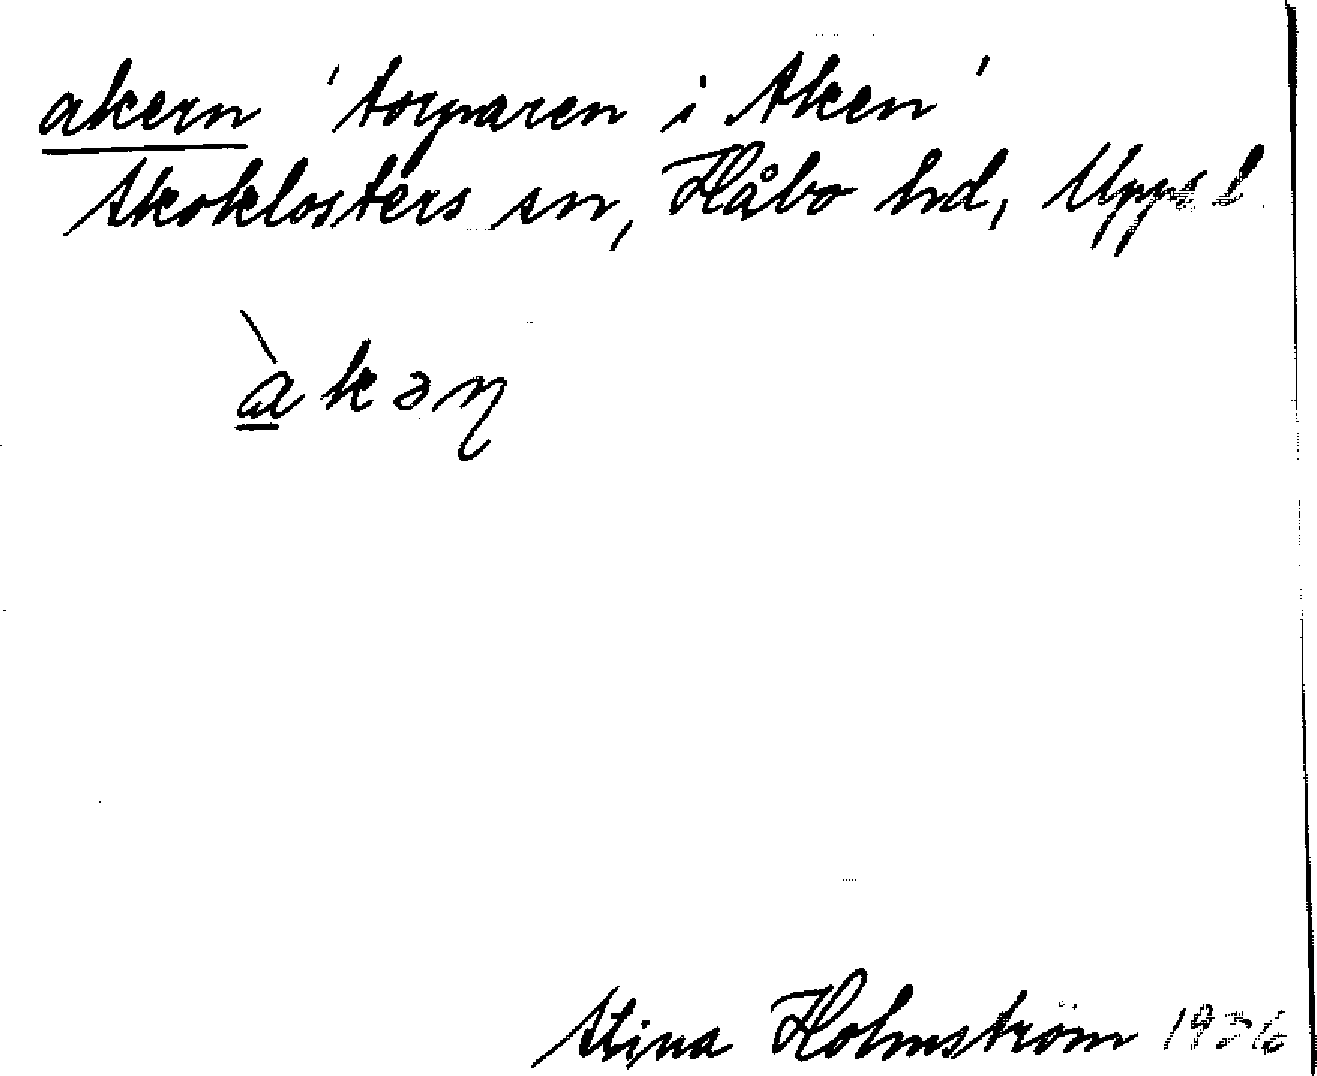 akern 'torparen i Aken'
Skoklosters sn, Håbo hd, Uppl.
àkəɳ
Stina Holmström 1936